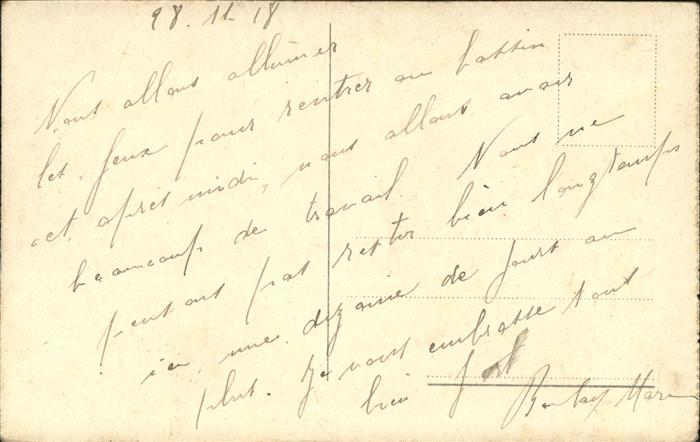 28.11.18
Nous allons allumer
les feux pour rentrer au bassin
cet après midi, nous allons avoir
beaucoup de travail. Nous ne
pensons pas rester bien longtemps
ici, une dizaine de jours au
plus. Je vous embrasse tous
bien fort